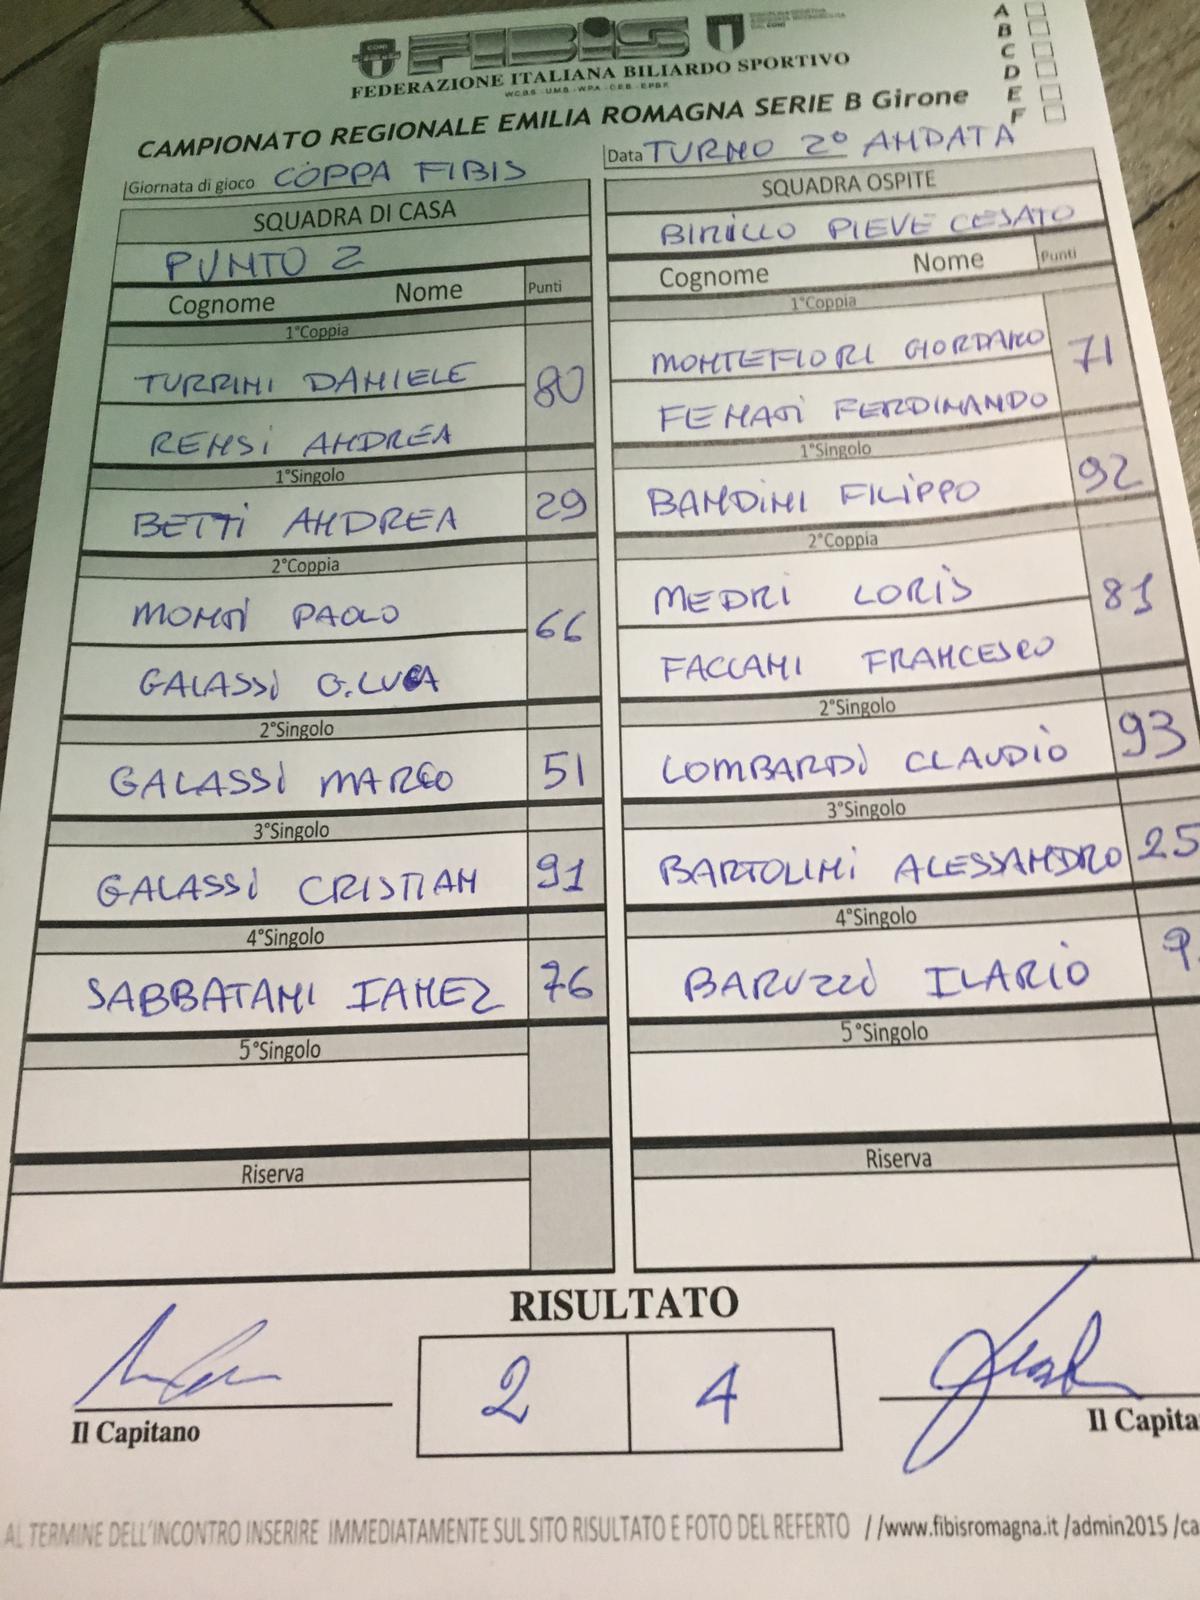 FIBIS
FEDERAZIONE ITALIANA BILIARDO SPORTIVO
W.C.B.S - U.M.B - W.P.A - C.E.B - E.P.B.F.
CAMPIONATO REGIONALE EMILIA ROMAGNA SERIE B Girone
A
B
C
D
E
F
Giornata di gioco COPPA FIBIS
Data TURNO 2° ANDATA
SQUADRA DI CASA
SQUADRA OSPITE
PUNTO 2
BIRILLO PIEVE CESATO
Cognome Nome Punti
Cognome Nome Punti
1°Coppia
1°Coppia
TURRINI DANIELE 80
MONTEFIORI GIORDANO 71
RENSI ANDREA
FENATI FERDINANDO
1°Singolo
1°Singolo
BETTI ANDREA 29
BANDINI FILIPPO 92
2°Coppia
2°Coppia
MONTI PAOLO 66
MEDRI LORIS 81
GALASSI G.LUCA
FACCANI FRANCESCO
2°Singolo
2°Singolo
GALASSI MARCO 51
LOMBARDI CLAUDIO 93
3°Singolo
3°Singolo
GALASSI CRISTIAN 91
BARTOLINI ALESSANDRO 25
4°Singolo
4°Singolo
SABBATANI IANEZ 76
BARUZZI ILARIO 9
5°Singolo
5°Singolo
Riserva
Riserva
RISULTATO
2 4
Il Capitano
Il Capita
AL TERMINE DELL'INCONTRO INSERIRE IMMEDIATAMENTE SUL SITO RISULTATO E FOTO DEL REFERTO //www.fibisromagna.it /admin2015 /ca